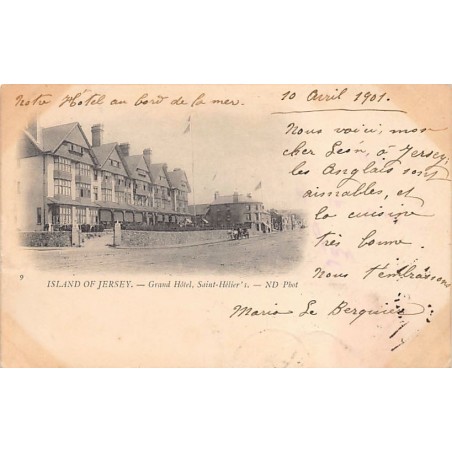 Notre Hôtel au bord de la mer.
10 Avril 1901.
Nous voici, mon
cher Léon, à Jersey,
les Anglais sont
aimables, et
la cuisine
très bonne.
Nous t'embrassons
Maria Le Berquier
9
ISLAND OF JERSEY. — Grand Hôtel, Saint-Hélier's. — ND Phot